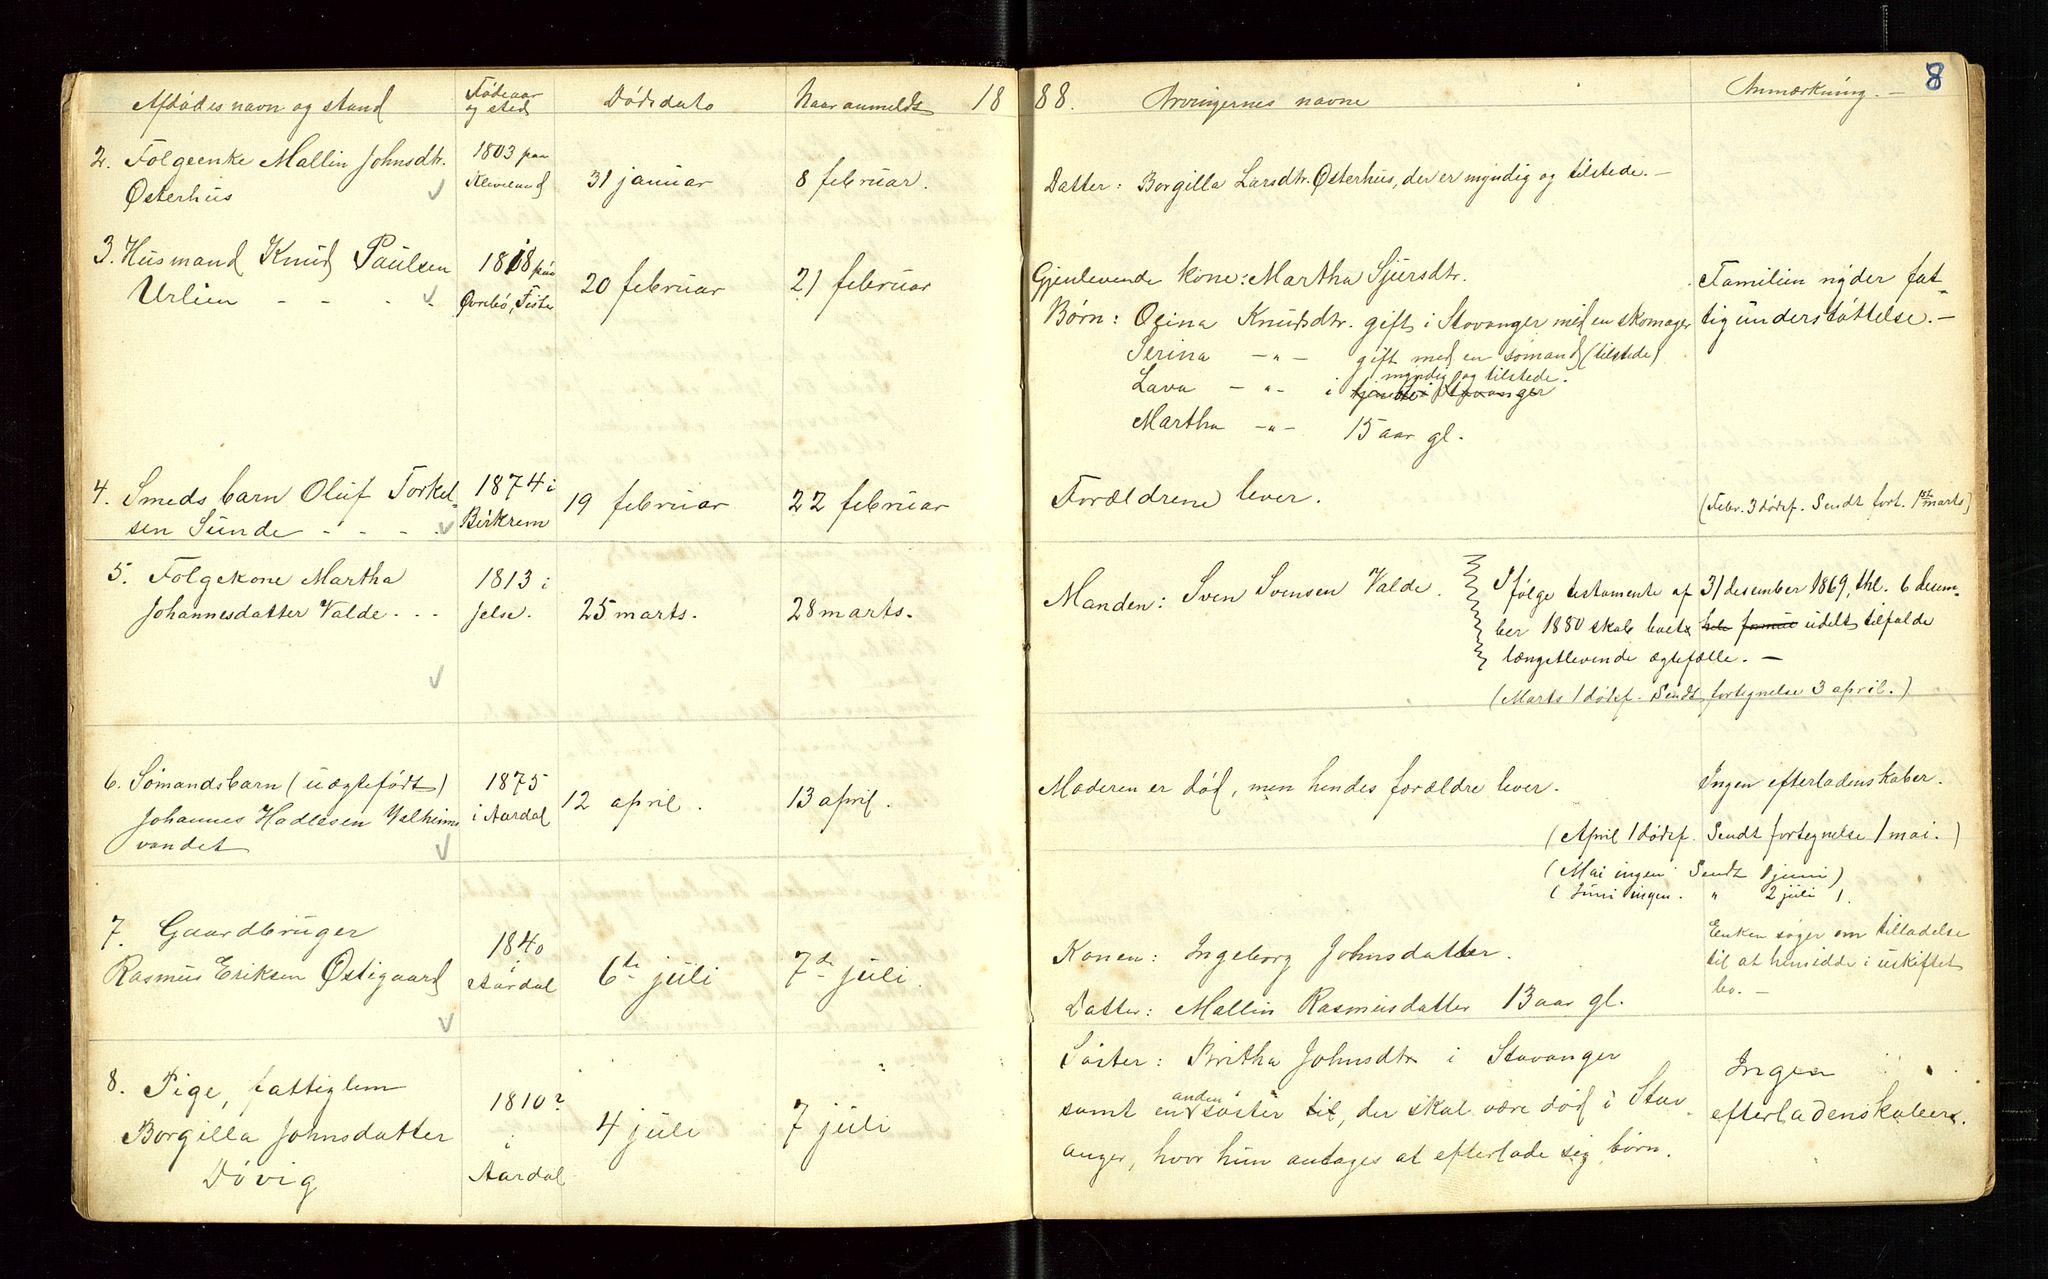 8
Afdødes navn og stand Fødeaar og sted Dødsdato Naar anmeldt 1888. Arvingernes navne Anmærkning. —
2. Følgeenke Mallin Johnsdtr. 1803 paa
Østerhus Kleveland 31 januar 8 februar. Datter: Borgilla Larsdtr. Østerhus, der er myndig og tilstede. —
3. Husmand Knud Paulsen 1818 paa
Urlien - - - - Øvrebø, Fister 20 februar 21 februar
Gjenlevende kone: Martha Sjursdtr. Familien nyder fat-
Børn: Osina Knudsdtr. gift i Stavanger med en skomager tigunderstøttelse. —
Serina — " — gift med en sømand (tilstede)
myndig og tilstede.
Lava — " — i tjeneste i Stavanger
Martha — " — 15 aar gl.
4. Smeds barn Oluf Torkel- 1874 i
sen Sunde - - - - Birkrem 19 februar 22 februar Forældrene lever. (Febr. 3 dødsf. Sendt fort. 1ste marts)
5. Følgekone Martha 1813 i
Johannesdatter Valde - - - Jelse. 25 marts. 28 marts.
Manden: Sven Svensen Valde. Ifølge testamente af 31 desember 1869, thl. 6 desem-
ber 1880 skal boets hele formue udelt tilfalde
længstlevende ægtefælle. —
(Marts 1 dødsf. Sendt fortegnelse 3 april.)
6. Sømandsbarn (uægtefødt) 1875
Johannes Hadlesen Valheims i Aardal 12 april. 13 april.
vandet
Moderen er død, men hendes forældre lever. Ingen efterladenskaber.
(April 1 dødsf. Sendt fortegnelse 1 mai.)
(Mai ingen Sendt 1 juni)
(Juni ingen. " 2 juli).
7. Gaardbruger 1840
Rasmus Eriksen Østigaard Aardal 6te juli 7de juli.
Enken søger om tilladelse
Konen: Ingeborg Johnsdatter. til at hensidde i uskiftet
bo. —
Datter: Mallin Rasmusdatter 13 aar gl.
8. Pige, fattiglem 1810?
Borgilla Johnsdatter i 4 juli 7 juli
Døvig Aardal
Søster: Britha Johnsdtr i Stavanger Ingen
samt en anden søster til, der skal være død i Stav- efterladenskaber.
anger, hvor hun antages at efterlade sig børn.